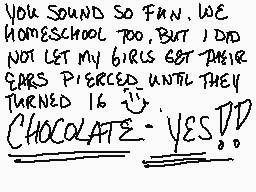 YOU SOUND SO FUN. WE
HOMESCHOOL TOO, BUT I DID
NOT LET MY GIRLS GET THEIR
EARS PIERCED UNTIL THEY
TURNED 16
CHOCOLATE - YES!!